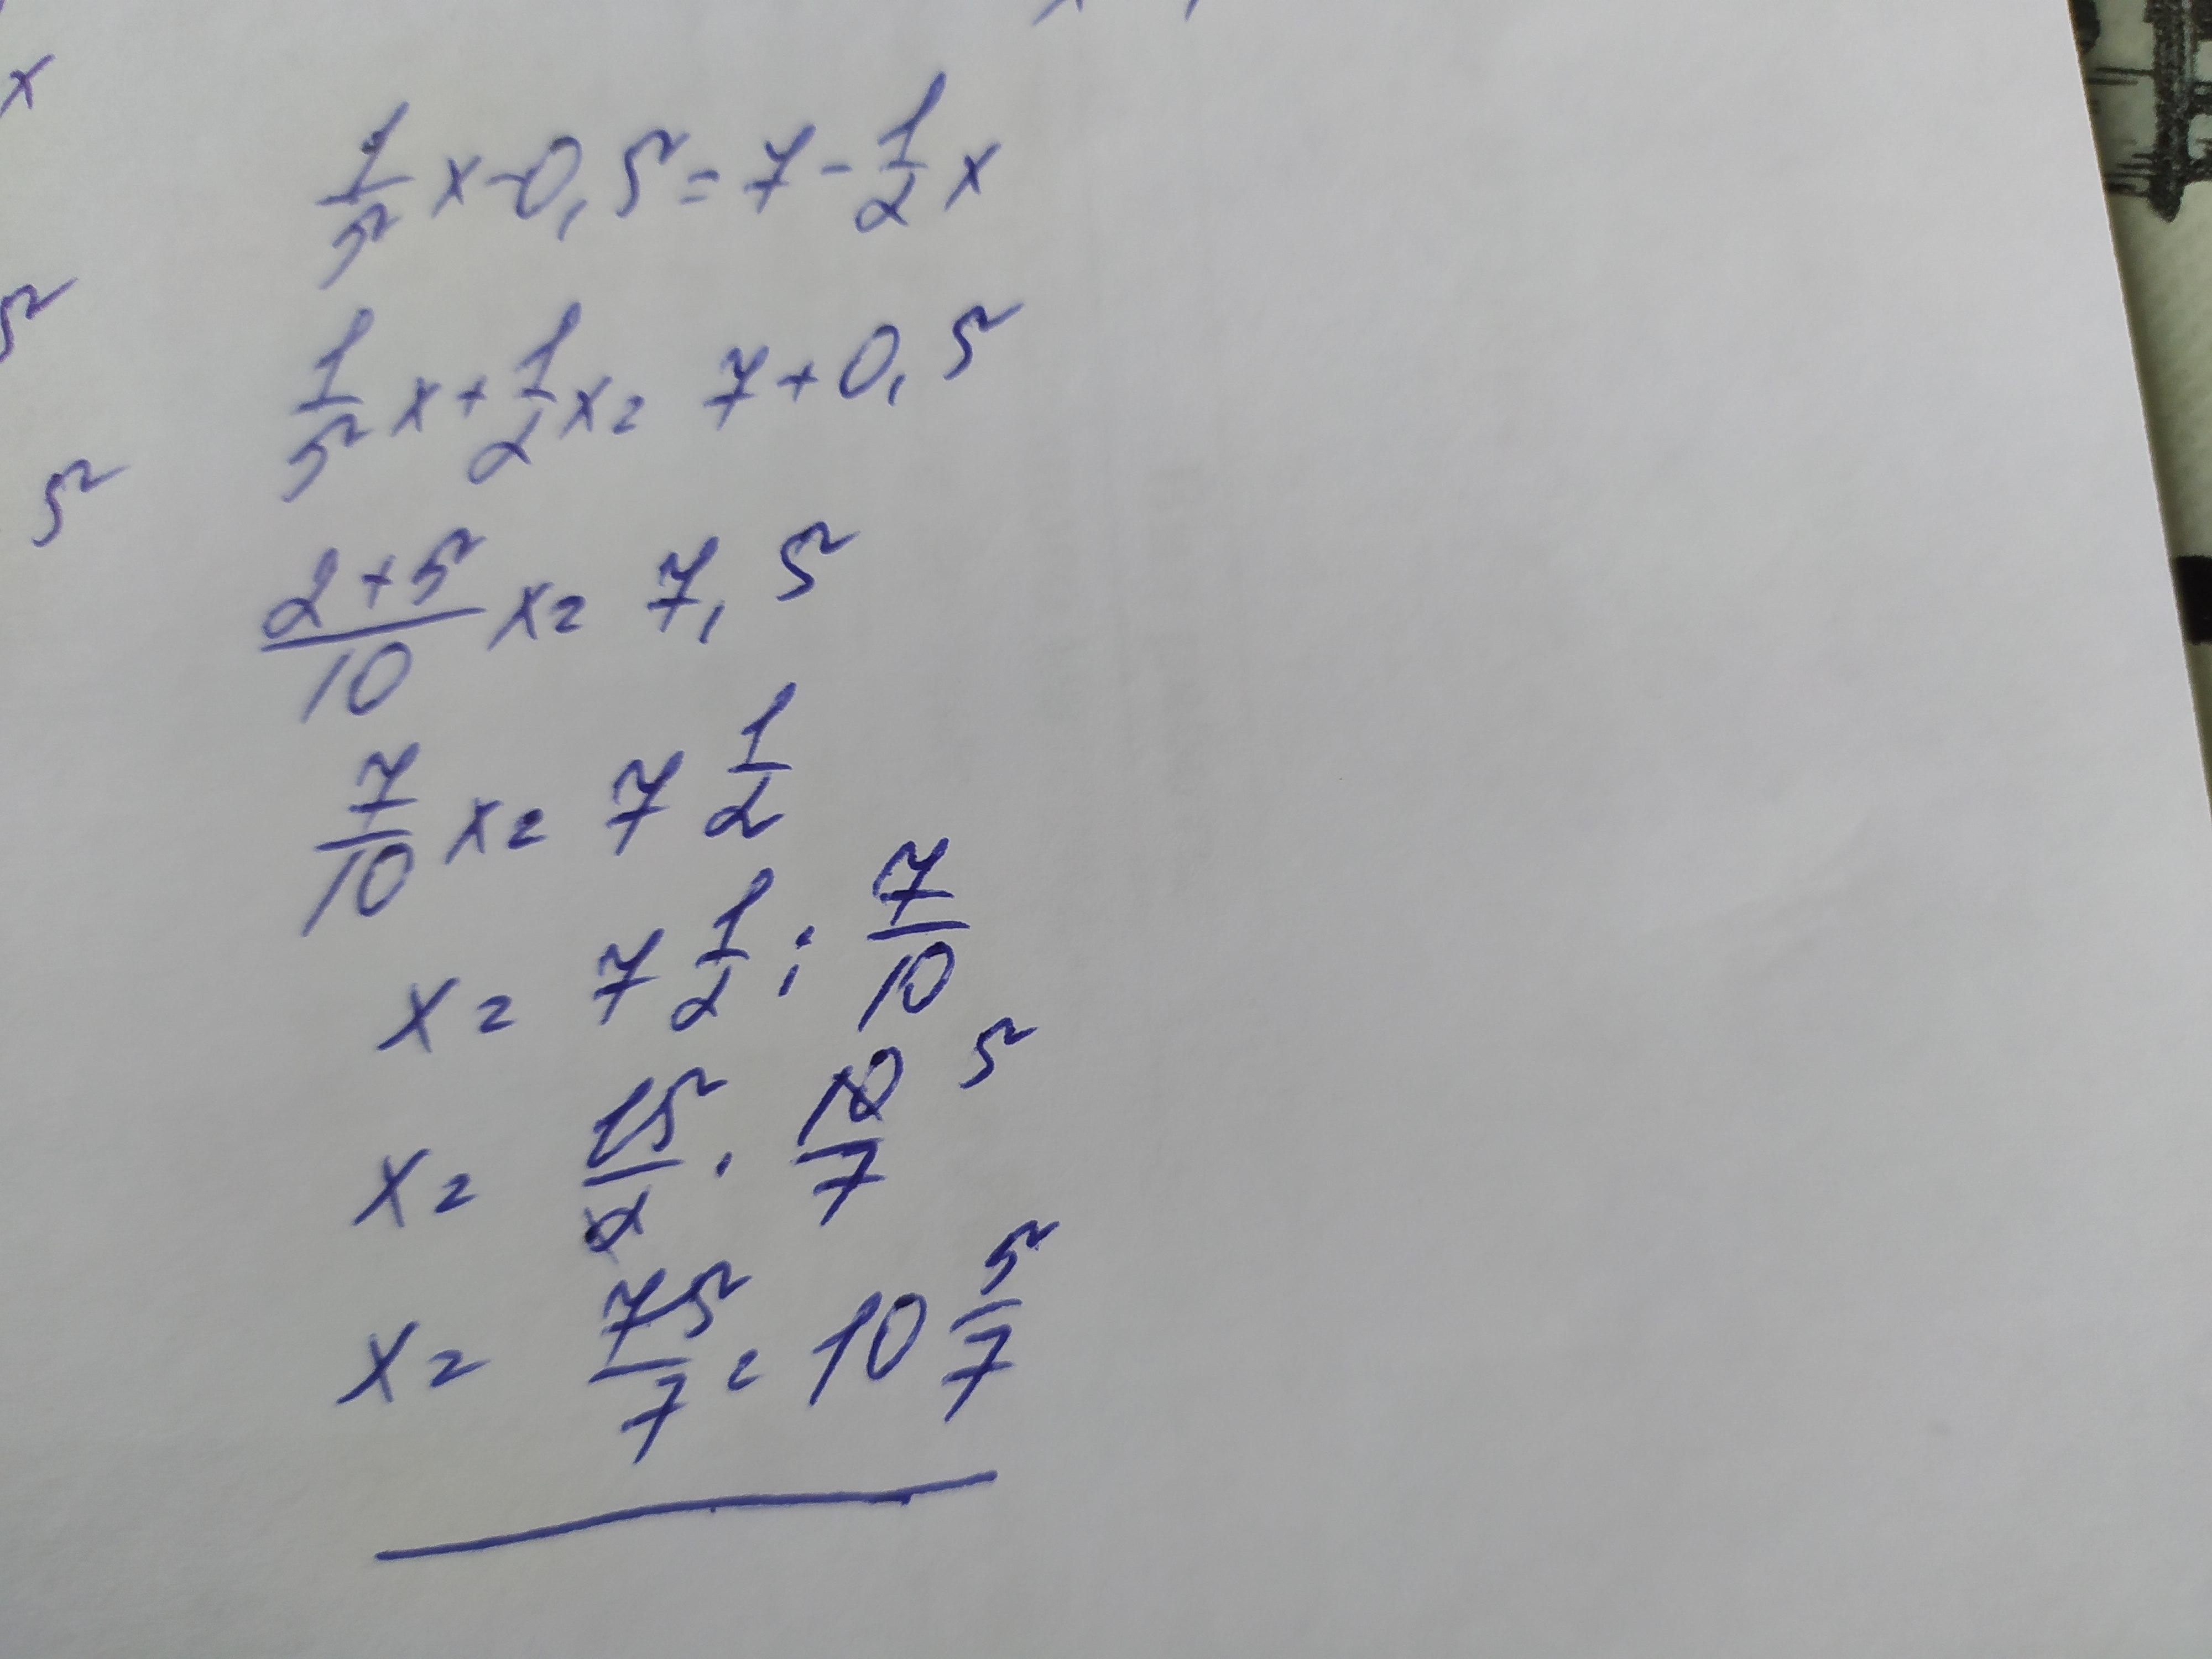 x
1/5 x - 0,5 = 7 - 1/2 x
5
1/5 x + 1/2 x = 7 + 0,5
5
2+5/10 x = 7,5
7/10 x = 7 1/2
x = 7 1/2 : 7/10
x = 15/2 · 10/7 5
x = 75/7 = 10 5/7